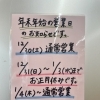 年末年始の営業日
のお知らせです。
12/30(土)通常営業
12/31(日)〜1/3(水)まで
お正月休みです。
1/4(木)〜通常営業